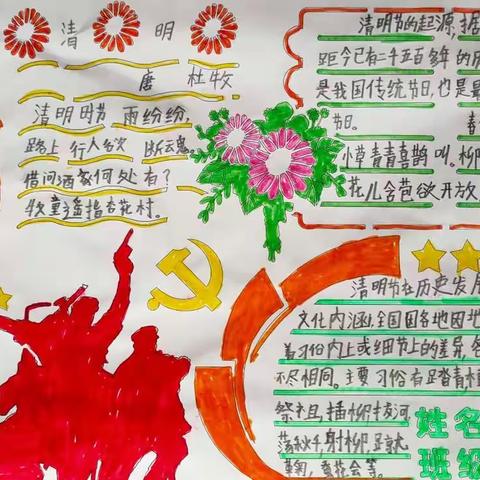 清明
唐 杜牧
清明时节雨纷纷,
路上行人欲断魂。
借问酒家何处有?
牧童遥指杏花村。
清明节的起源,据
距今已有二千五百多年的历
是我国传统节日,也是最
节日。
春
小草青青喜鹊叫。柳
花儿含苞欲开放
清明节在历史发展
文化内涵,全国各地因地
着习俗内上或细节上的差异,各
不尽相同。主要习俗有踏青植
祭祖,插柳拔河
荡秋千,射柳,蹴
鞠,蚕花会等。
姓名
班级